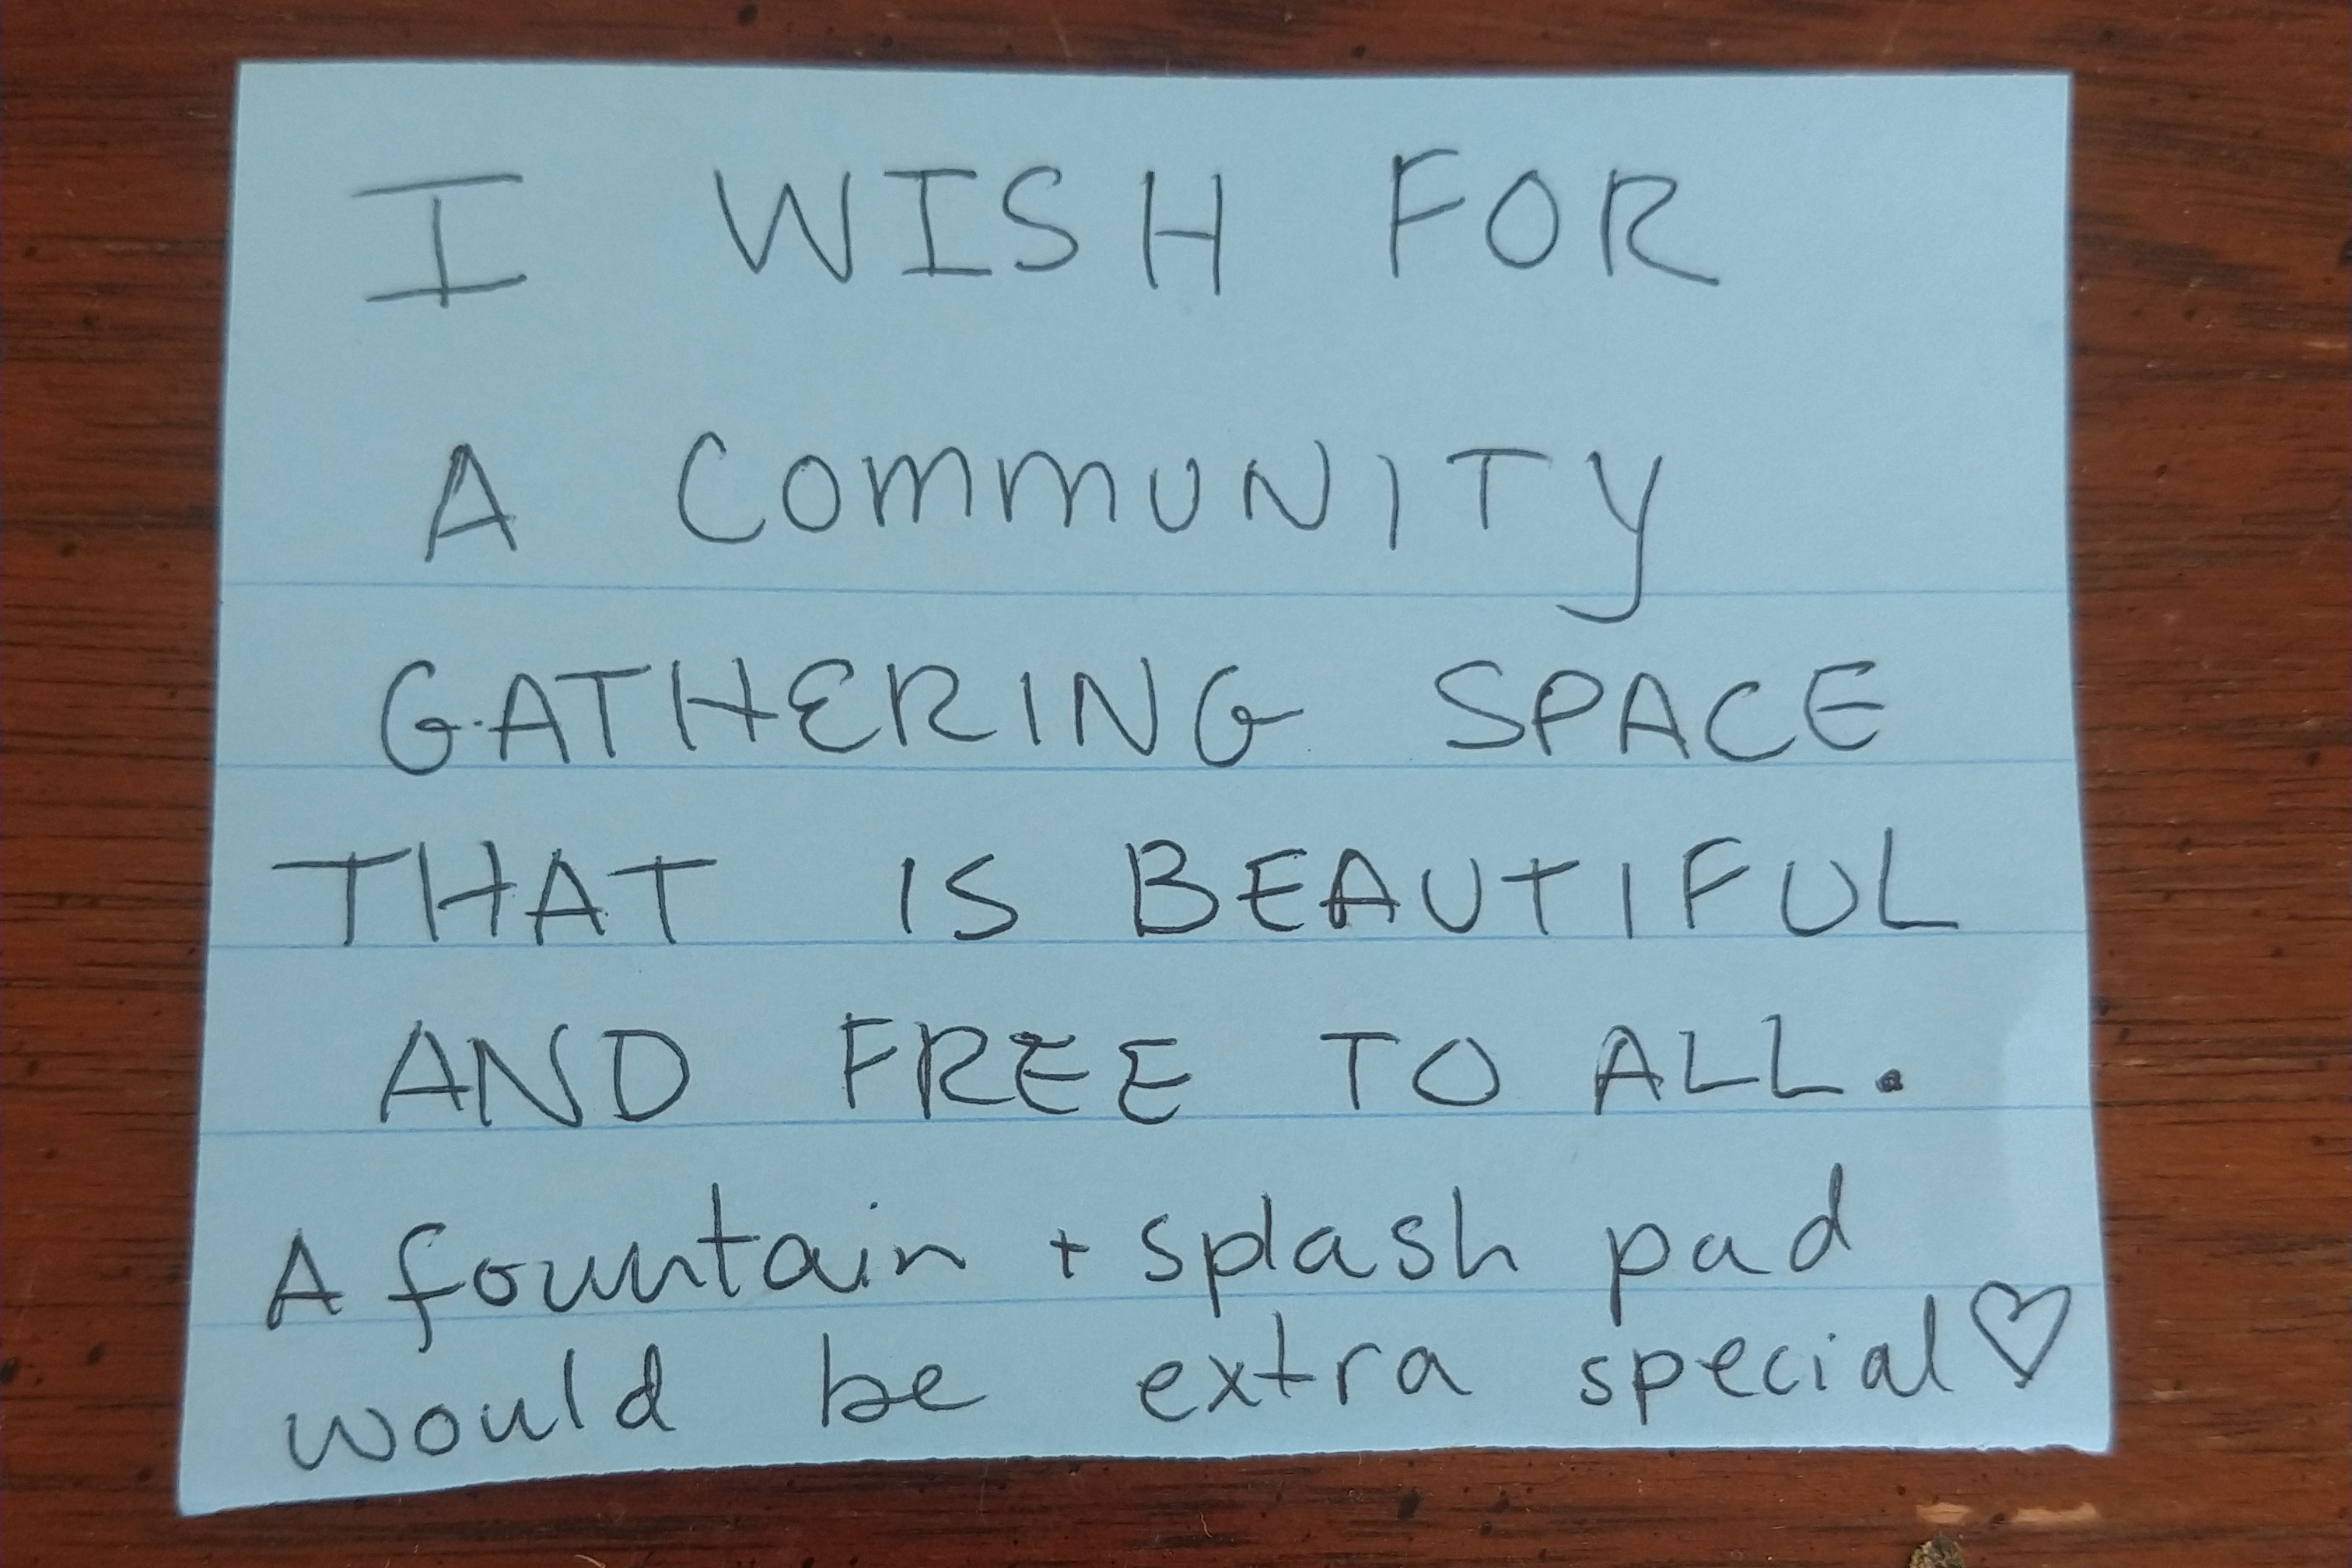 I WISH FOR
A COMMUNITY
GATHERING SPACE
THAT IS BEAUTIFUL
AND FREE TO ALL.
A fountain + splash pad
would be extra special ♡